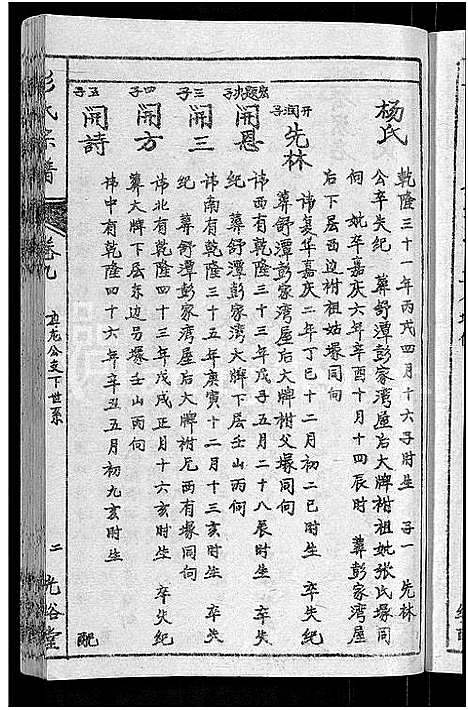 杨氏
乾隆三十一年丙戌四月十六子时生 子一 先林
公卒失纪 葬舒潭彭家湾屋后大牌祔祖妣张氏塚同
向 妣卒嘉庆六年辛酉十月十四辰时 葬彭家湾屋
后下层西边祔祖姑塚同向
开润子
先林
讳复华嘉庆二年丁巳十二月初二巳时生 卒失纪
葬舒潭彭家湾屋后大牌祔父塚同向
次子
開恩
讳西有乾隆三十三年戊子五月二十八辰时生 卒失
纪 葬舒潭彭家湾大牌下层壬山丙向
三子
開三
讳南有乾隆三十五年庚寅十二月十三亥时生 卒失
纪 葬舒潭彭家湾屋后大牌祔兄西有塚同向
四子
開方
讳北有乾隆四十三年戊戌正月十六亥时生 卒失纪
葬大牌下层东边另塚壬山丙向
五子
開詩
讳中有乾隆四十六年辛丑五月初九亥时生
配
彭氏宗譜
卷九
公支下世系
二
光裕堂